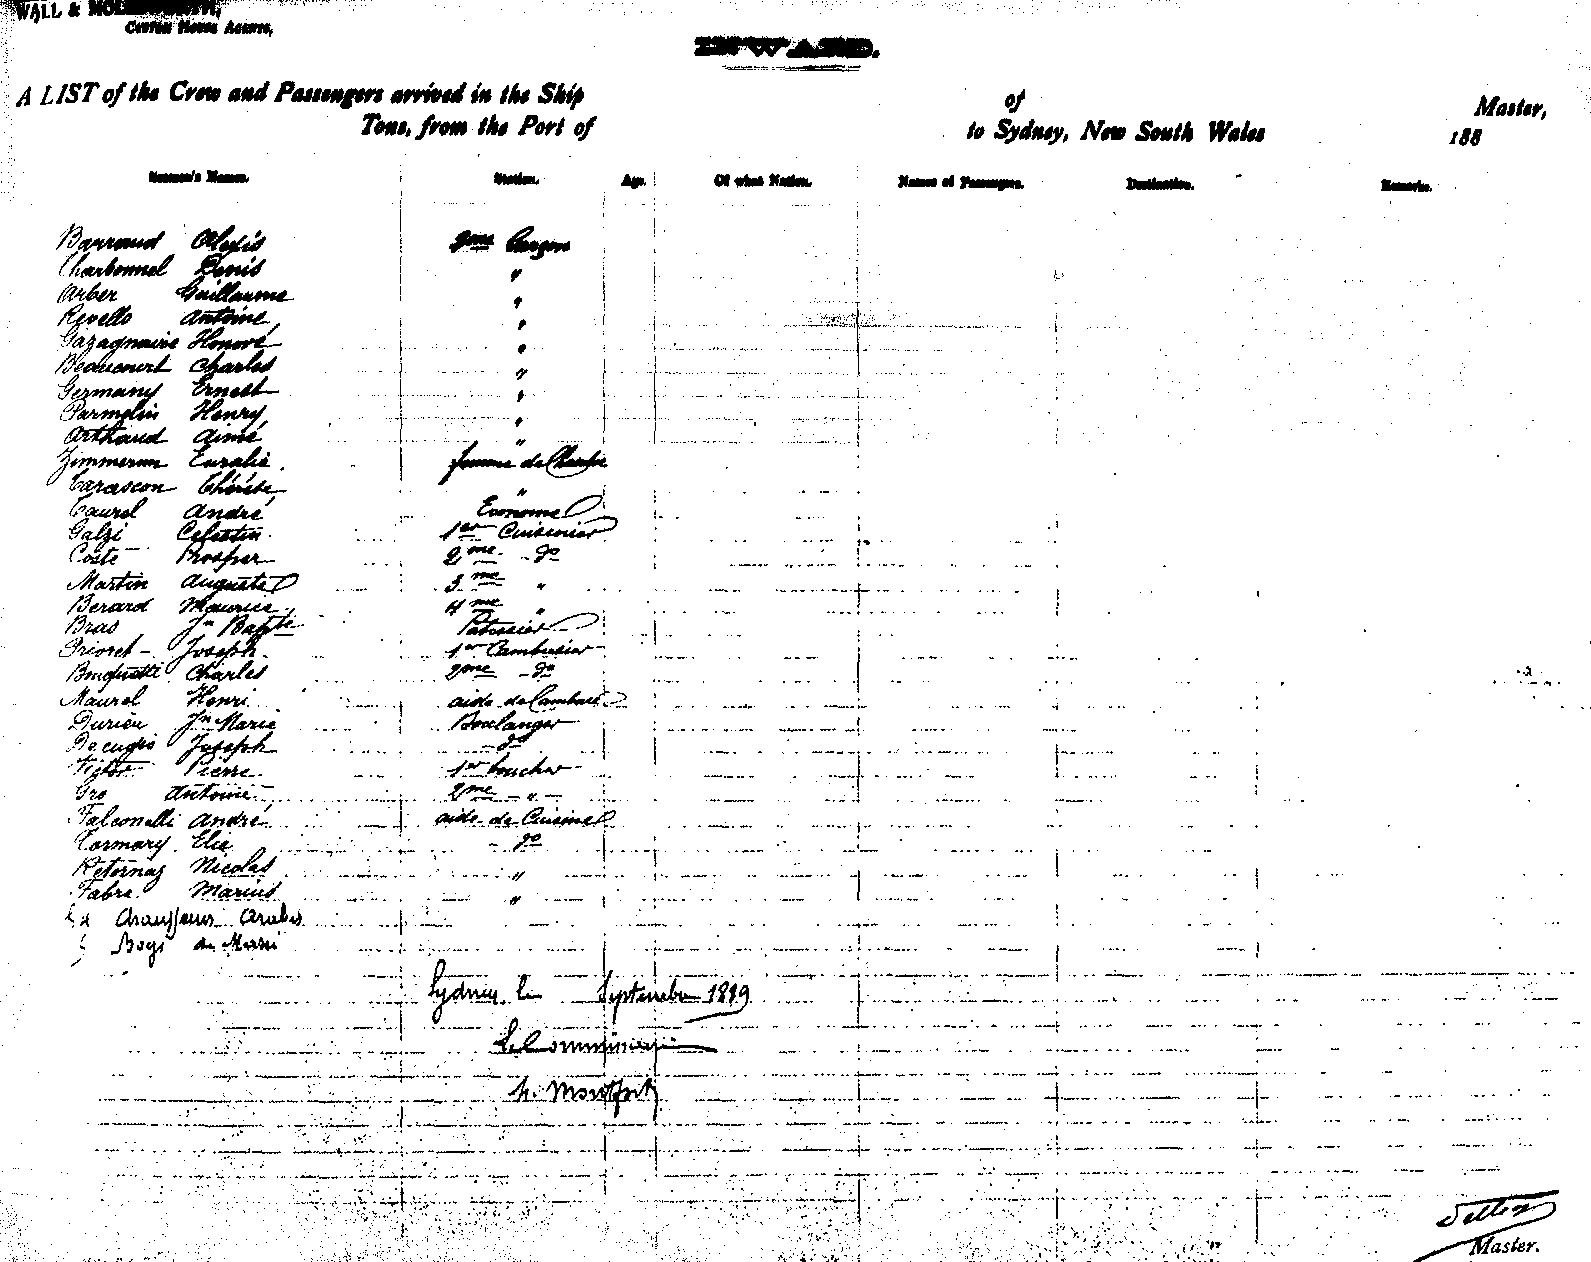 WALL &
Custom House Agents,
INWARD.
A LIST of the Crew and Passengers arrived in the Ship of Master,
Tons, from the Port of to Sydney, New South Wales 188
Seamen's Names. Station. Age. Of what Nation. Names of Passengers. Destination. Remarks.
Barraud Alexis 2me Garçon
Charbonnel Denis "
Arber Guillaume "
Revello Antoine "
Gazagnaire Honoré "
Beaucourt Charles "
Germany Ernest "
Parmelin Henry "
Arthaud Aimé "
Zimmerman Euralie femme de Chambre
Tarascon Thérèse "
Taurel André Econome
Galzi Celestin 1er Cuisinier
Coste Prosper 2me do
Martin Auguste 3me "
Berard Maurice 4me "
Bras Jn Baptte Patissier
Prioret Joseph 1er Cambusier
Charles 2me do
Maurel Henri aide de Cambuse
Durieu Jn Marie Boulanger
Decugis Joseph do
Pierre 1er boucher
Gro Antoine 2me "
Falconelli André aide de Cuisine
Tormary Elie do
Retornaz Nicolas "
Fabre Marius "
Chauffeurs Arabes
Boys
Sydney, le Septembre 1889
Le Commissaire
Montfort
Master.